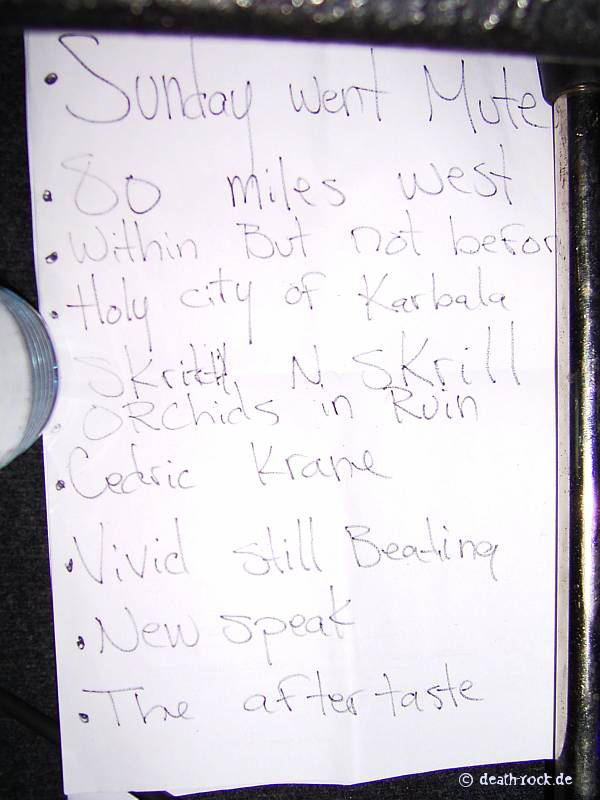 • Sunday went Mute
• 80 miles west
• Within But not befor
• Holy city of Karbala
N SKrill
ORChids in Ruin
• Cedric Krane
• Vivid still Beating
• New speak
• The aftertaste
© death-rock.de